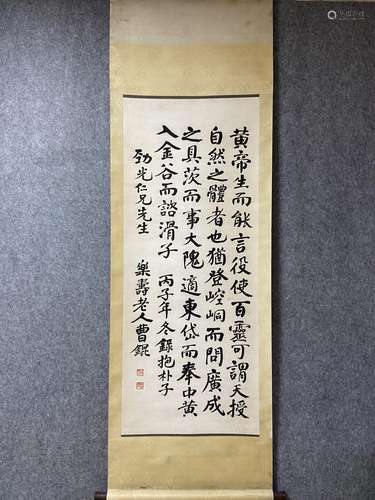 黄帝生而能言役使百靈可謂天授
自然之體者也猶登崆峒而問廣成
之具茨而事大隗適東岱而奉中黄
入金谷而諮滑子 丙子年冬錄抱朴子
劲光仁兄先生
樂壽老人曹錕